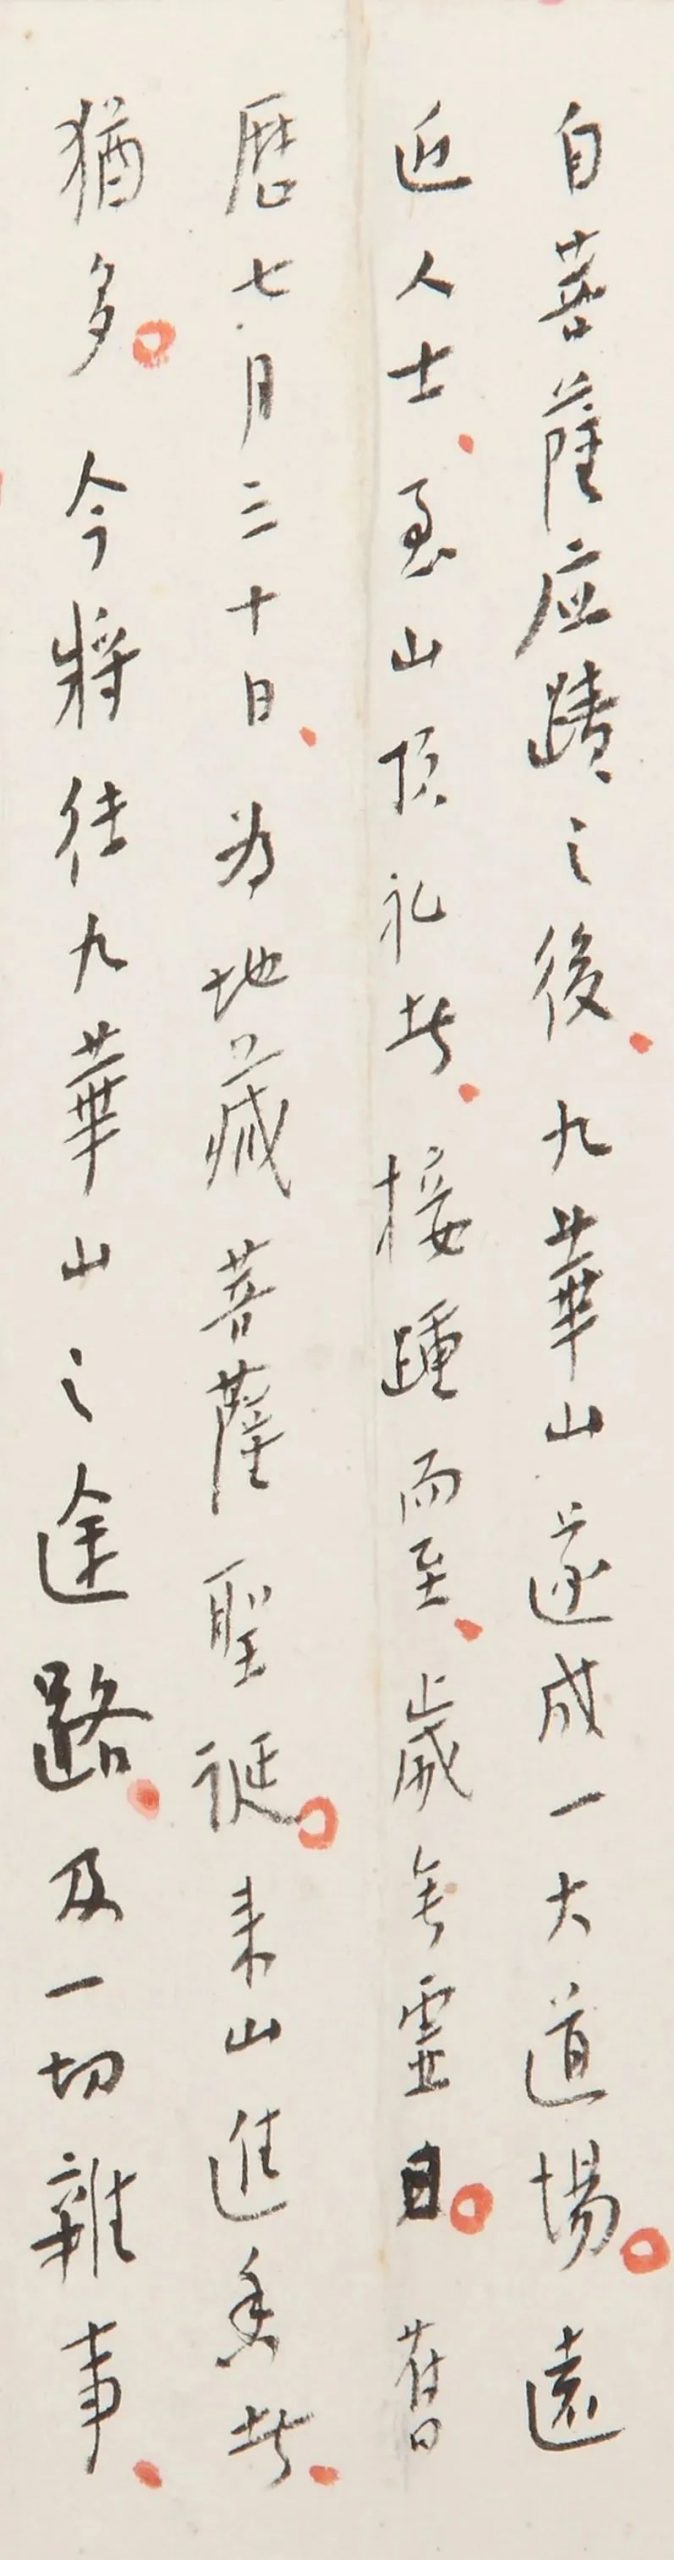 自菩薩应蹟之後、九華山遂成一大道場。遠
近人士、至山頂礼者、接踵而至、歲無虛日。舊
曆七月三十日、为地藏菩薩聖誕。来山進香者、
猶多。今将往九華山之途路、及一切雜事、